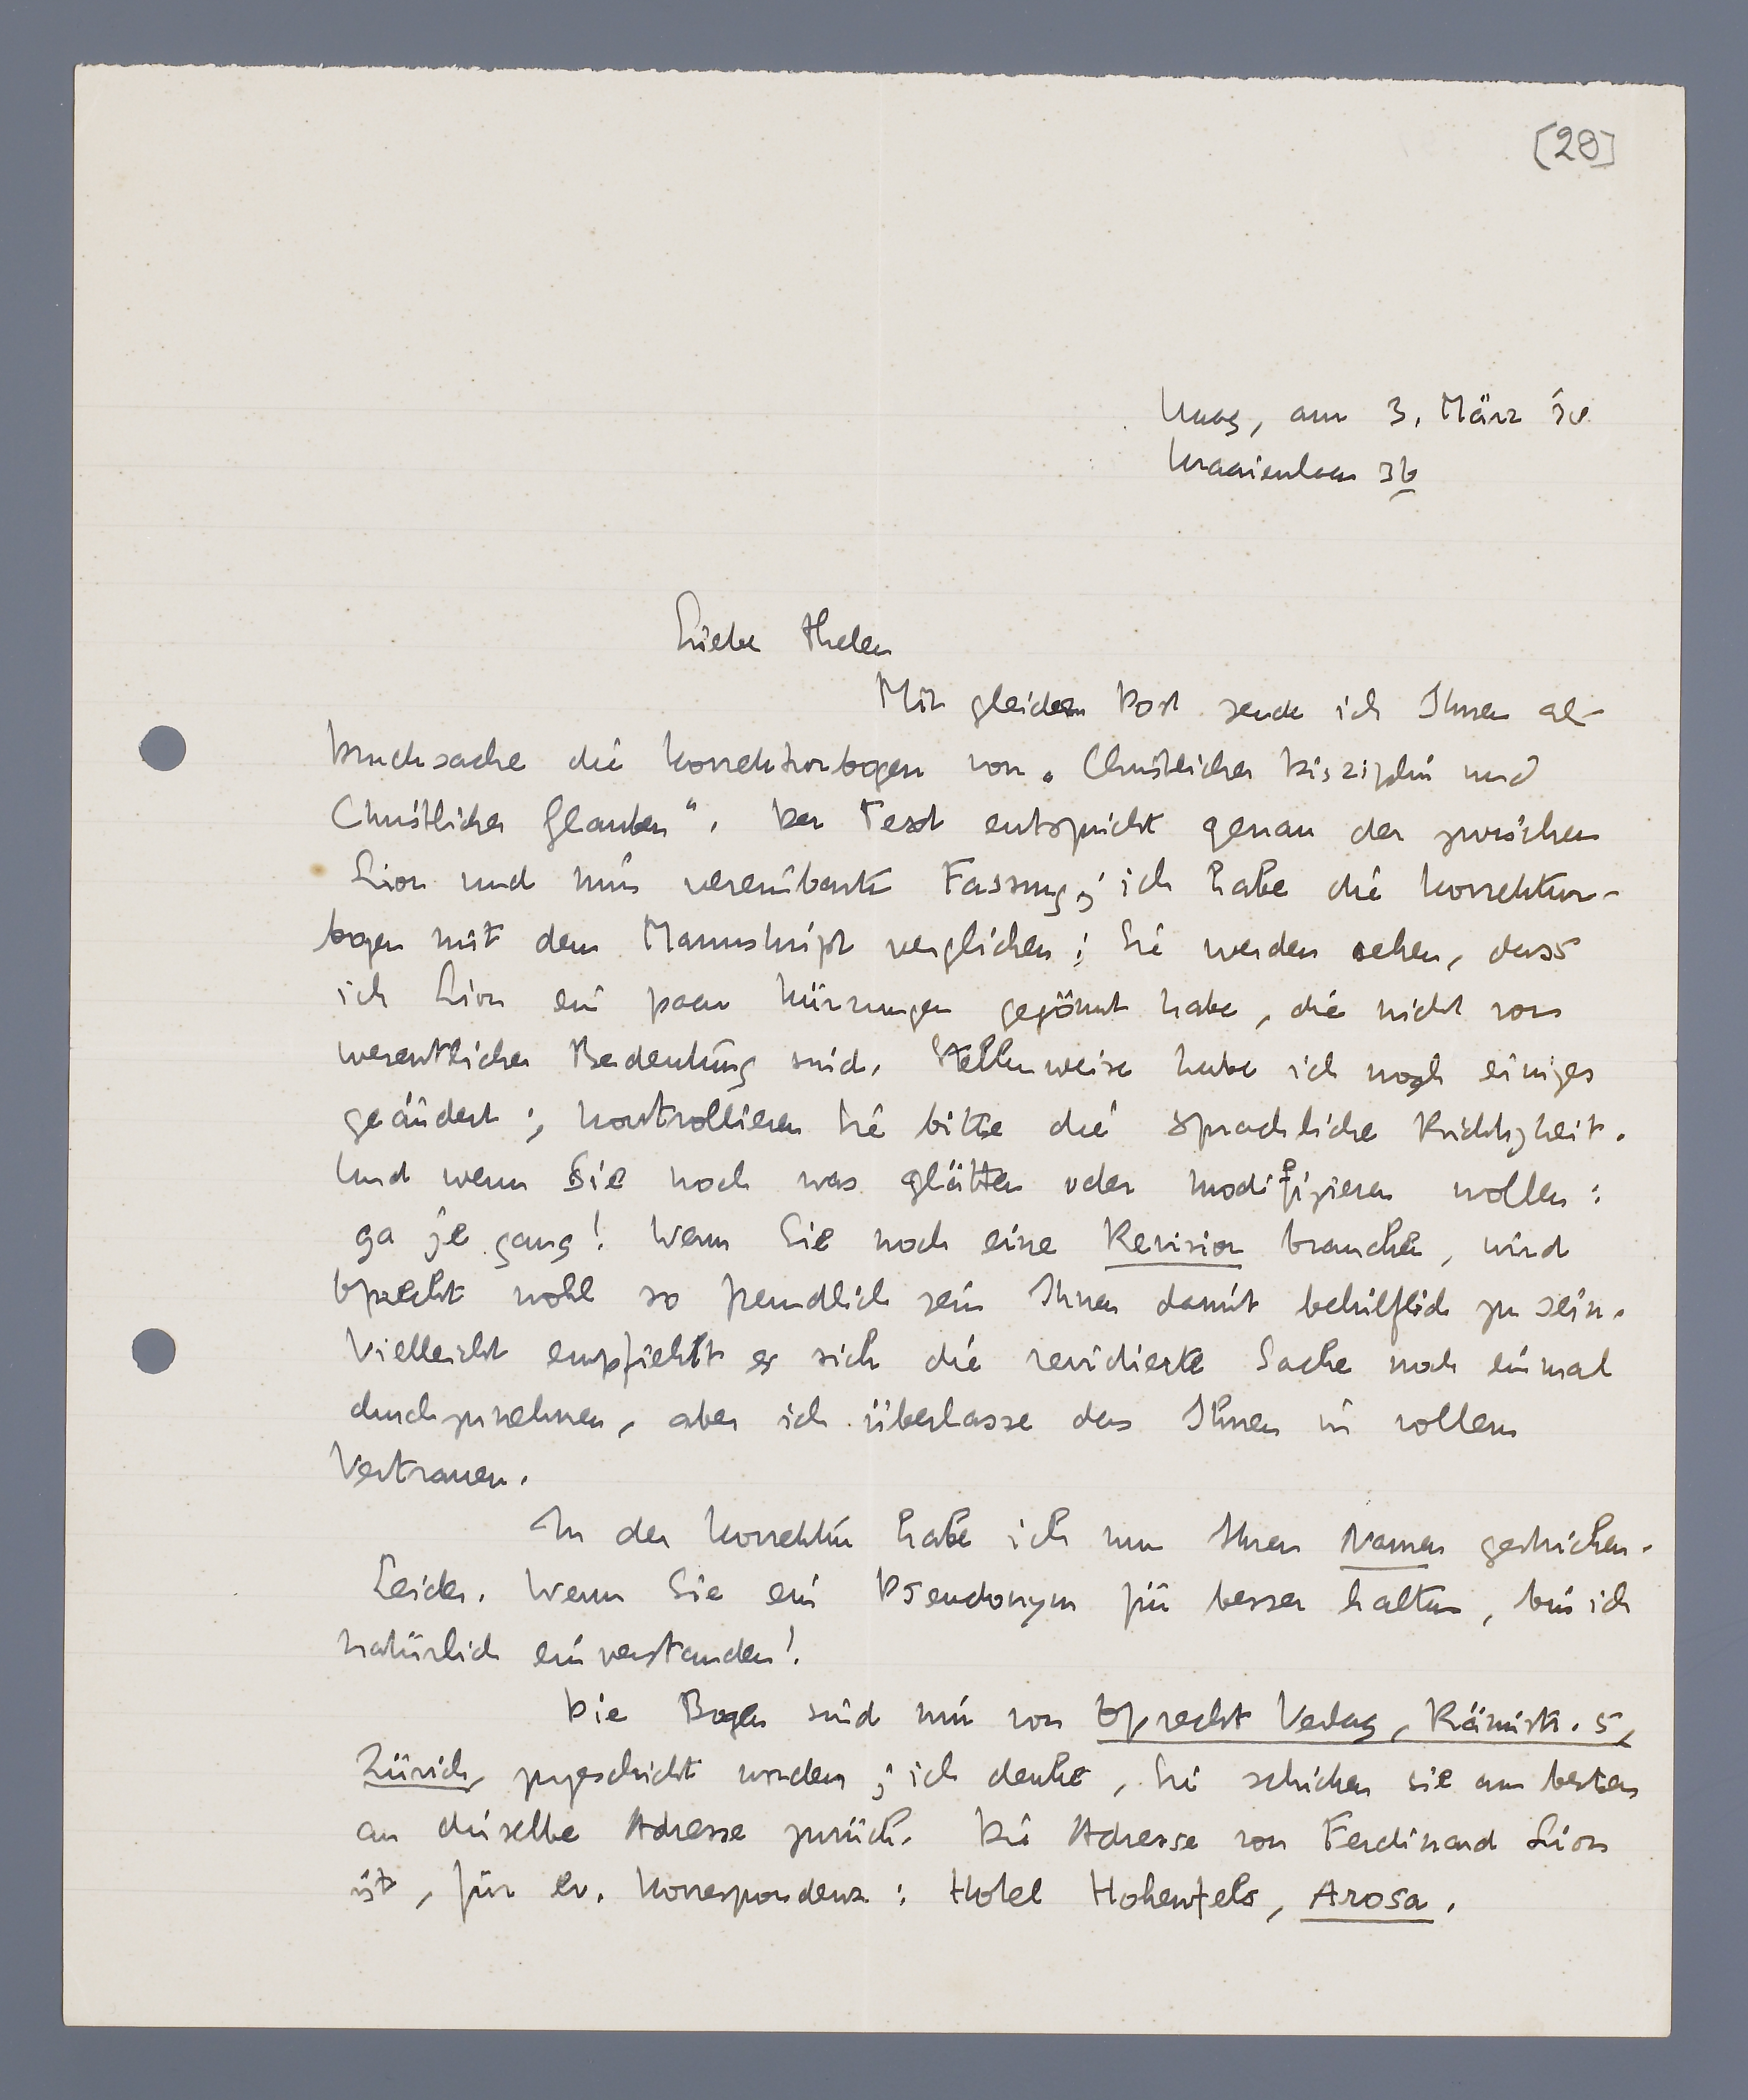 [28]
Haag, am 3. März 38
Kraaienlaan 36
Lieber Thelen
Mit gleicher Post sende ich Ihnen als
Drucksache die Korrekturbogen von „Christlicher Disziplin und
Christlicher Glauben“. Der Text entspricht genau der zwischen
Lion und mir vereinbarten Fassung; ich habe die Korrektur-
bogen mit dem Manuskript verglichen; Sie werden sehen, dass
ich Lion ein paar Kürzungen gegönnt habe, die nicht von
wesentlicher Bedeutung sind. Stellenweise habe ich noch einiges
geändert; kontrollieren Sie bitte die sprachliche Richtigkeit.
Und wenn Sie noch was glätten oder modifizieren wollen:
ga je gang! Wenn Sie noch eine Revision brauchen, wird
Oprecht wohl so freundlich sein Ihnen damit behilflich zu sein.
Vielleicht empfiehlt es sich die revidierte Sache noch einmal
durchzunehmen, aber ich überlasse das Ihnen in vollem
Vertrauen.
In der Korrektur habe ich nun Ihren Namen gestrichen.
Leider. Wenn Sie ein Pseudonym für besser halten, bin ich
natürlich einverstanden!
Die Bogen sind mir von Oprecht Verlag, Rämistr. 5,
Zürich, zugeschickt worden; ich denke, Sie schicken sie am besten
an dieselbe Adresse zurück. Die Adresse von Ferdinand Lion
ist, für ev. Korrespondenz: Hotel Hohenfels, Arosa.